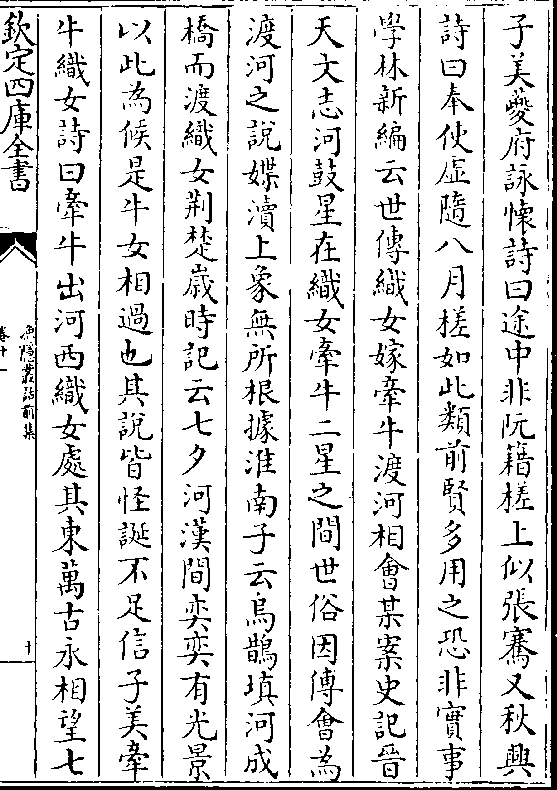 子美夔府詠懷詩曰途中非阮籍槎上似張騫又秋興
詩曰奉使虛隨八月槎如此類前賢多用之恐非實事
學林新編云世傳織女嫁牽牛渡河相會某案史記晉
天文志河鼓星在織女牽牛二星之間世俗因傅會為
渡河之說媟瀆上象無所根據淮南子云烏鵲填河成
橋而渡織女荆楚歲時記云七夕河漢間奕奕有光景
以此為候是牛女相過也其說皆怪誕不足信子美牽
牛織女詩曰牽牛出河西織女處其東萬古永相望七
欽定四庫全書
漁隱叢話前集
卷十一
十